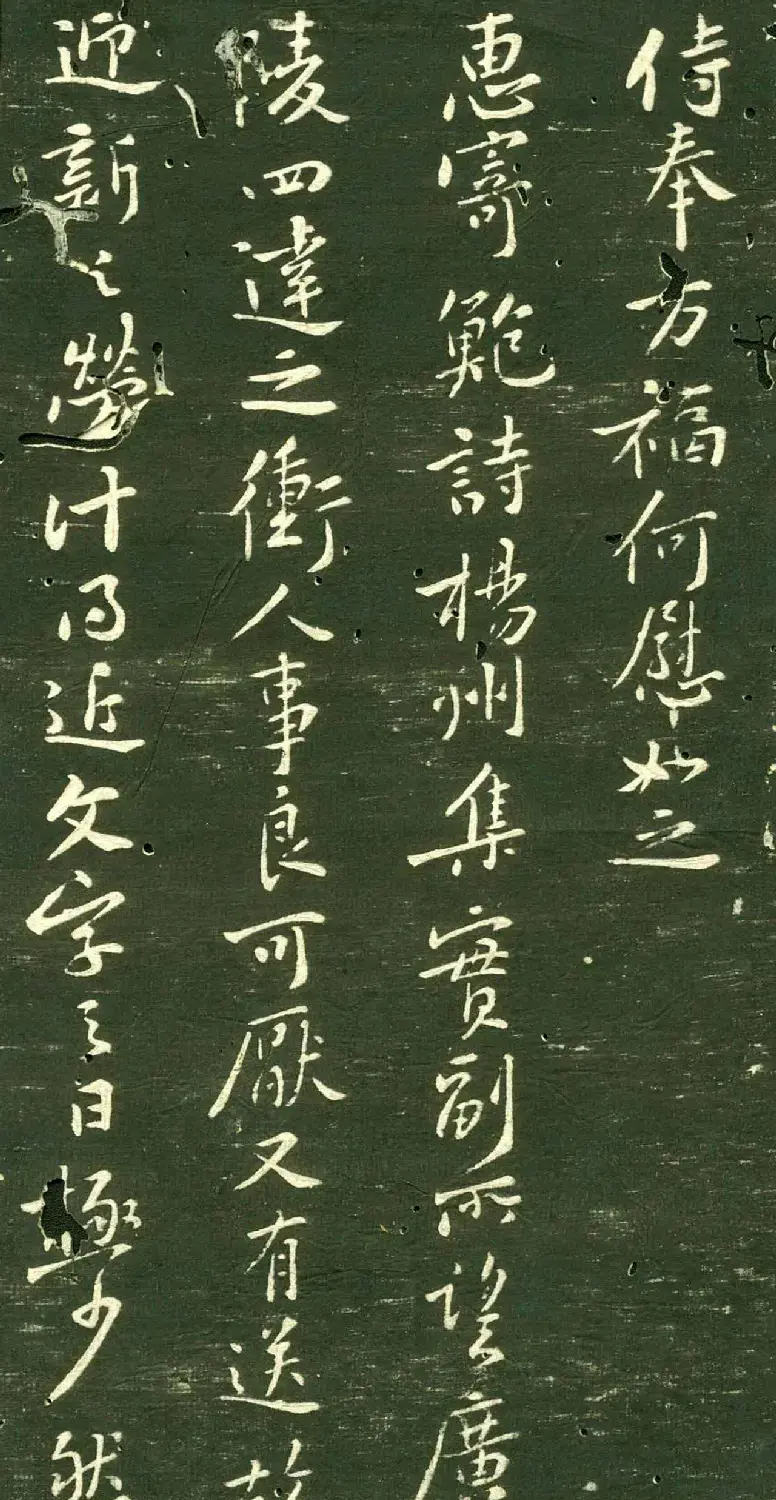 侍奉方福何慰如之
惠寄鲍詩楊州集實副所望廣
陵四達之衝人事良可厭又有送故
迎新之勞計得近文字之日極少然